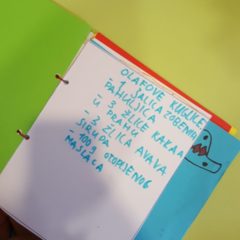 OLAFOVE KUGLICE
- 1 ŠALICA ZOBENIH
PAHULJICA
- 3 ŽLICE KAKAA
U PRAHU
- 3 ŽLICA AVAVA
SIRUPA
- 100 g OTOPLJENOG
MASLACA